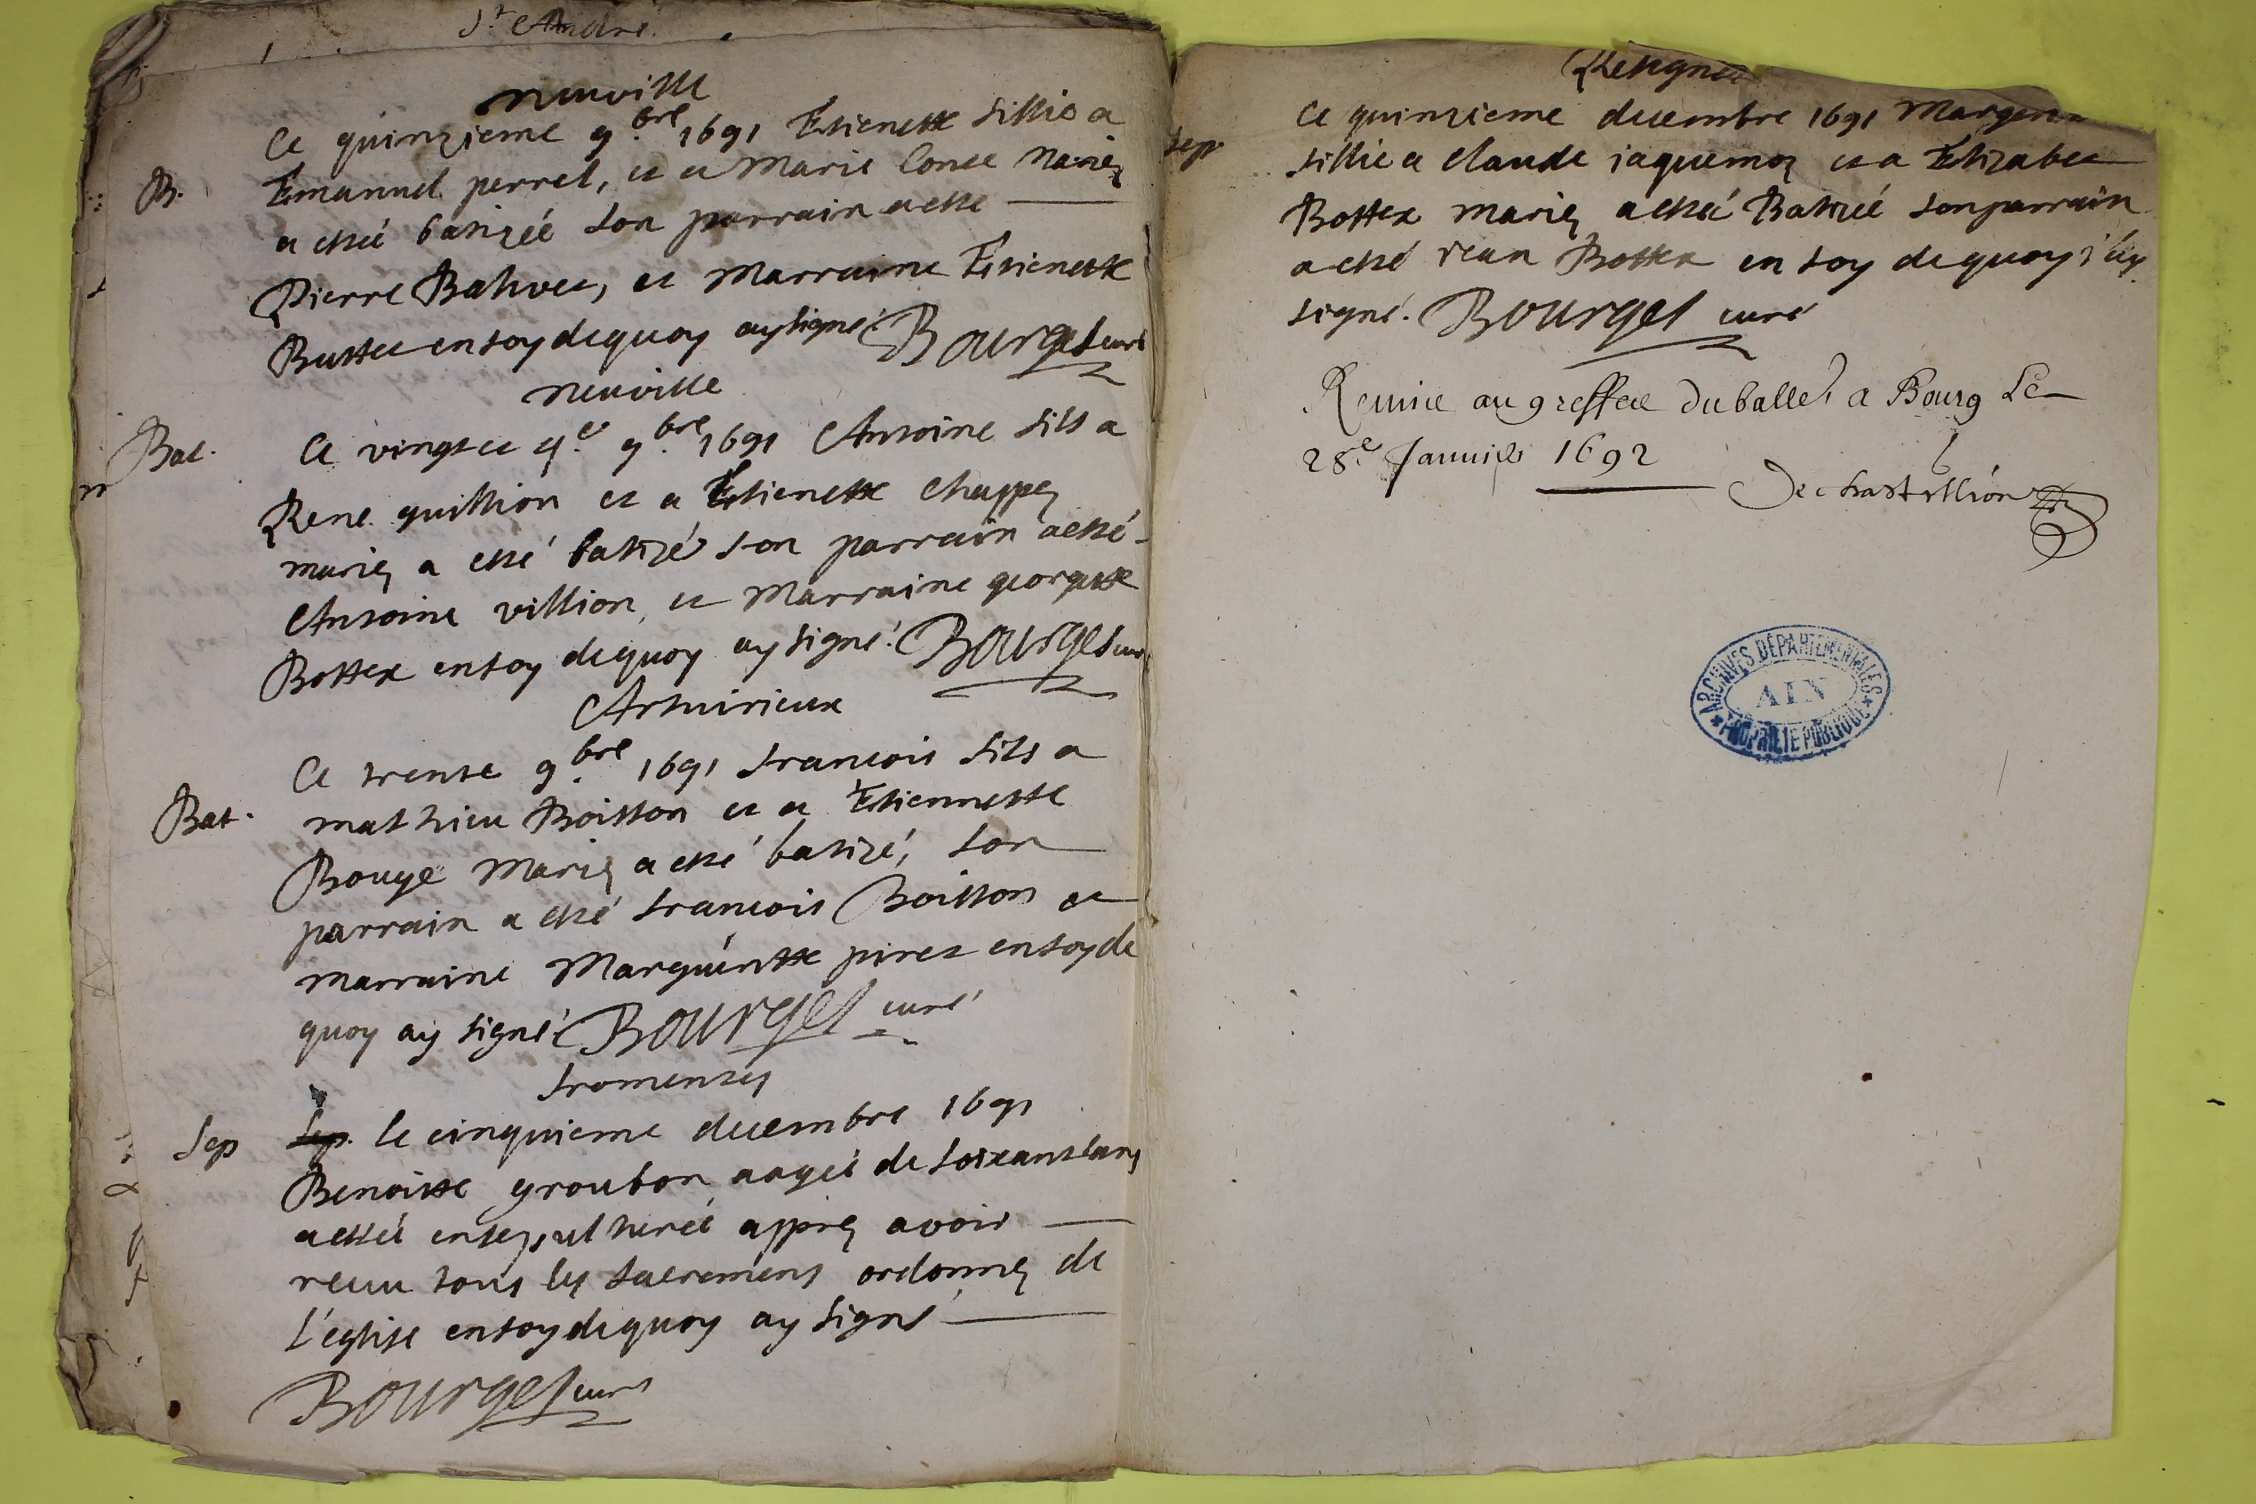 St André
neuville
B. Ce quinzieme 9.bre 1691 Estienette fillie a
Emanuel perret, et a Marie Conte Mariez
a esté batizéé son parrain a esté
Pierre Bahvet, et Marraine Estienette
Buttet en foy de quoy ay signé Bourget curé
neuville
Bat. Ce vingt et 4.e 9.bre 1691 Antoine fils a
Rene quillion et a Estienette Chappez
mariez a esté batizé son parrain a esté
Antoine villion, et Marraine georgette
Bottex en foy de quoy ay signé. Bourget curé
Arturieux
Bat. Ce trente 9.bre 1691 francois fils a
mathieu Boisson et a Estiennette
Bouge Mariez a esté batizé, son
parrain a esté francois Boisson et
marraine Marguéritte piret en foy de
quoy ay signé Bourget curé
fromentes
Sep Sep. le cinquieme decembre 1691
Benoitte groubon aagéé de soixante ans
a estéé ensepulturéé apprez avoir
receu tous les sacremens ordonnez de
l'eglise en foy de quoy ay signé
Bourget curé
Resignat
Sep. Ce quinzieme decembre 1691
fillie a Claude iaquemoz et a Elizabet
Bottex mariez a estéé Batizéé son parrain
a esté Jean Bottex en foy de quoy j'ay
signé. Bourget curé
Remise au greffe du balle. a Bourg Le
28e Janvier 1692
Dechastillion
ARCHIVES DÉPARTEMENTALES
AIN
PROPRIÉTÉ PUBLIQUE